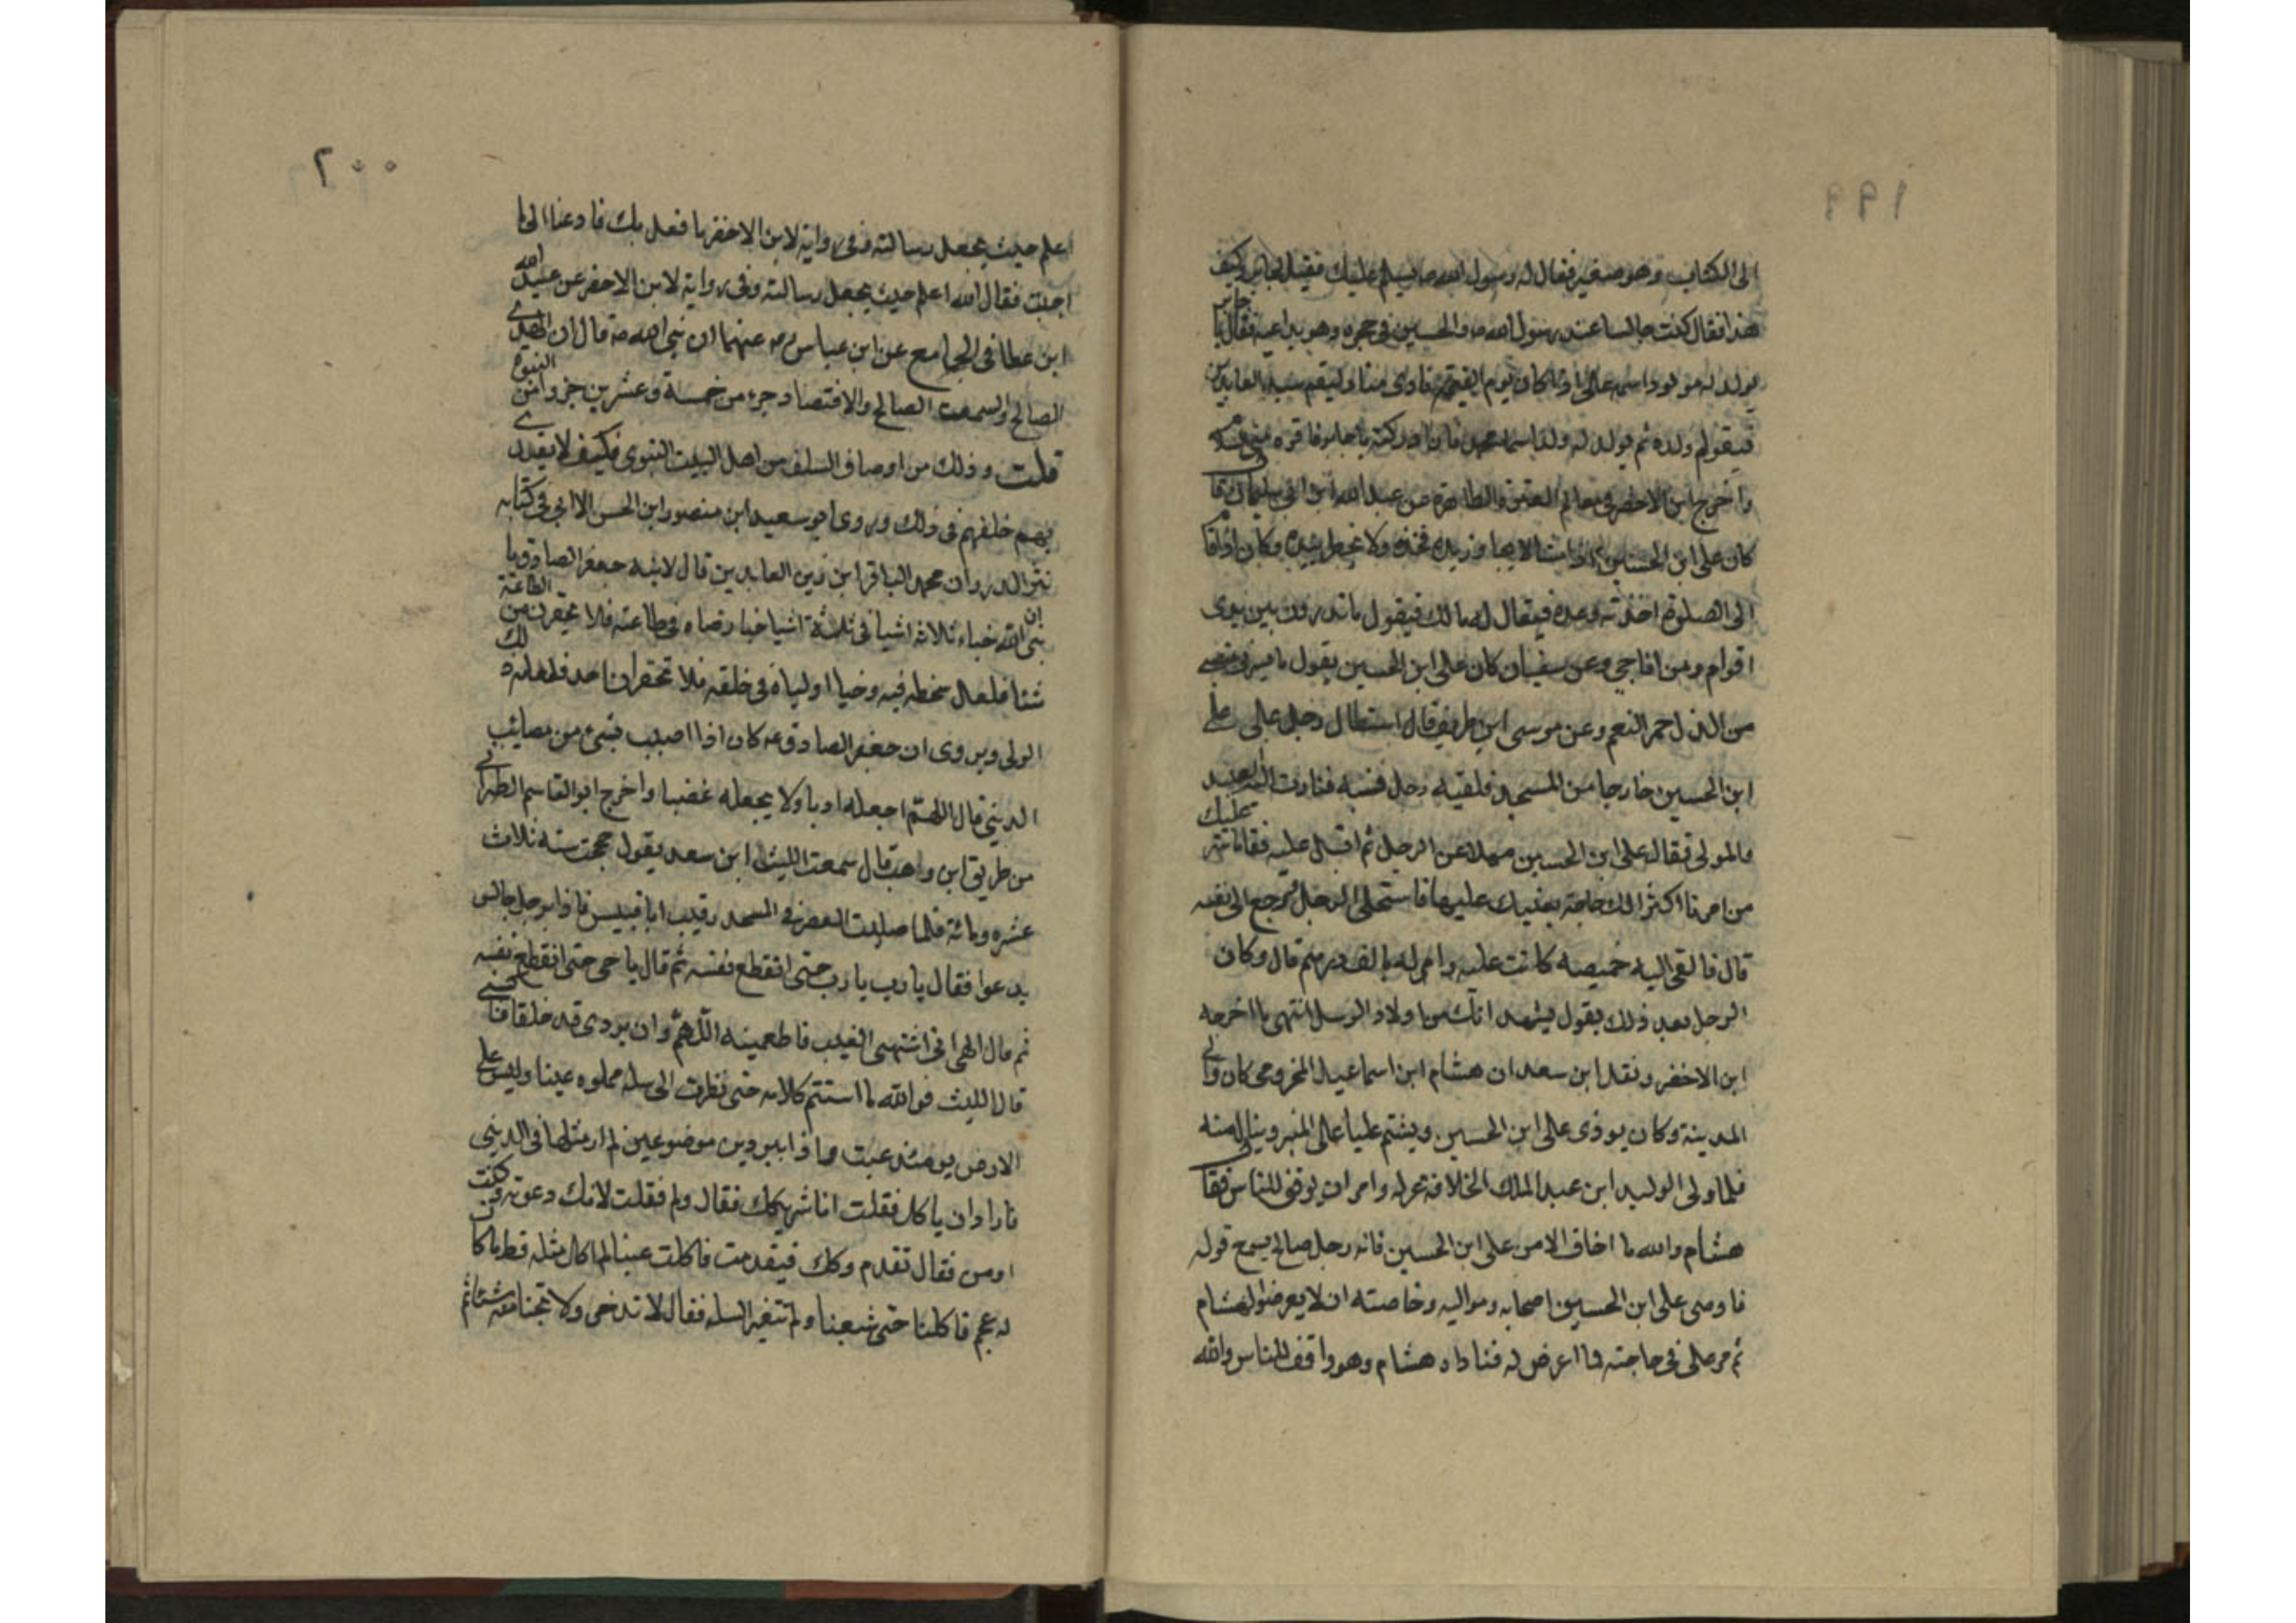 ١٩٩
الى الكتاب وهو صغير فقال له رسول الله ص يسلم عليك فقيل لجابر وكيف
هذا فقال كنت جالسا عند رسول الله ص والحسين في حجره وهو يداعبه فقال يا جابر
يولد له مولود اسمه علي اذا كان يوم القيمة نادى مناد ليقم سيد العابدين
فيقوم ولده ثم يولد له ولد اسمه محمد فان ادركته يا جابر فاقره مني
واخرج ابن الاخضر في معالم العترة الطاهرة عن عبد الله ابن ابي سليمان قال
كان علي ابن الحسين اذا مشا لا يجاوز يده فخذه ولا يخطر بيده وكان اذا قام
الى الصلوة اخذته رعدة فيقال له مالك فيقول ما تدرون بين يدى
اقوام ومن اناجي وعن سفيان كان علي ابن الحسين يقول ما يسرني بنصيبي
من الذل حمر النعم وعن موسى ابن طريف قال استطال رجل على علي
ابن الحسين خارجا من المسجد فلقيه رجل فسبه فثارت اليه العبيد
والموالى فقال علي ابن الحسين مهلا عن الرجل ثم اقبل عليه فقال ما ستر عليك
من امرنا اكثر الك حاجة يعنيك عليها فاستحى الرجل فرجع الى نفسه
قال فالقى اليه خميصه كانت عليه وامر له بالف درهم قال وكان
الرجل بعد ذلك يقول يشهد انك من اولاد الرسل انتهى ما اخرجه
ابن الاخضر ونقل ابن سعد ان هشام ابن اسماعيل المخزومي كان والي
المدينة وكان يوذى علي ابن الحسين ويشتم عليا على المنبر وينال منه
فلما ولى الوليد ابن عبد الملك الخلافة عزله وامر ان يوقف للناس فقال
هشام والله ما اخاف الا من علي ابن الحسين فانه رجل صالح يسمع قوله
فاوصى علي ابن الحسين اصحابه ومواليه وخاصته ان لا يعرضوا لهشام
ثم مر علي في حاجته فما اعرض له فناداه هشام وهو واقف للناس والله
٢٠٠
اعلم حيث يجعل رسالته وفي رواية لابن الاخضر ما فعل بك فادعنا الى ما
احببت فقال الله اعلم حيث يجعل رسالته وفي رواية لابن الاخضر عن عبيد الله
ابن عطا في الجامع عن ابن عباس رض عنهما ان نبي الله ص قال ان الهدي
الصالح والسمت الصالح والاقتصاد جزء من خمسة وعشرين جزوا من النبوة
قلت وذلك من اوصاف السلف من اهل البيت النبوى فكيف لا يقتدى
بهم خلفهم في ذلك وروى ابو سعيد ابن منصور ابن الحسن الابي في كتابه
نثر الدر وان محمد الباقر ابن زين العابدين قال لابنه جعفر الصادق يا
بني ان الله خباء ثلاثه اشيا في ثلثة اشيا خبا رضاه في طاعته فلا تحقرن من الطاعة
شئا فلعل سخطه فيه وخبا اولياه في خلقه فلا تحقرن احد فلعله ذلك
الولى ويروى ان جعفر الصادق ع كان اذا اصيب بشئ من مصائب
الدنيى قال اللهم اجعله ادبا ولا يجعله غضبا واخرج ابو القاسم الطبراني
من طريق ابن واهب قال سمعت الليث ابن سعد يقول حججت سنه ثلاث
عشره ومائة فلما صليت العصر في المسجد رقيت ابا قبيس فاذا برجل جالس
يدعوا فقال يا رب يا رب حتى انقطع نفسه ثم قال يا حى حتى انقطع نفسه
ثم قال الهى اني اشتهى العنب فاطعمينه اللهم وان بردى قد خلقا فاكسني
قال الليث فوالله ما استتم كلامه حتى نظرت الى سلة مملوه عنبا وليس على
الارض يومئذ عنب وما ذا ببردين موضوعين لم ار مثلها في الدنيى
فاراد ان ياكل فقلت انا شريكك فقال ولم فقلت لانك دعوت وكنت
اومن فقال تقدم وكل فيقدمت فاكلت عنبا لم اكل مثله قط ما كان
له عجم فاكلنا حتى شبعنا ولم تتغير السله فقال لا تدخر ولا تخبا منه شئا ثم